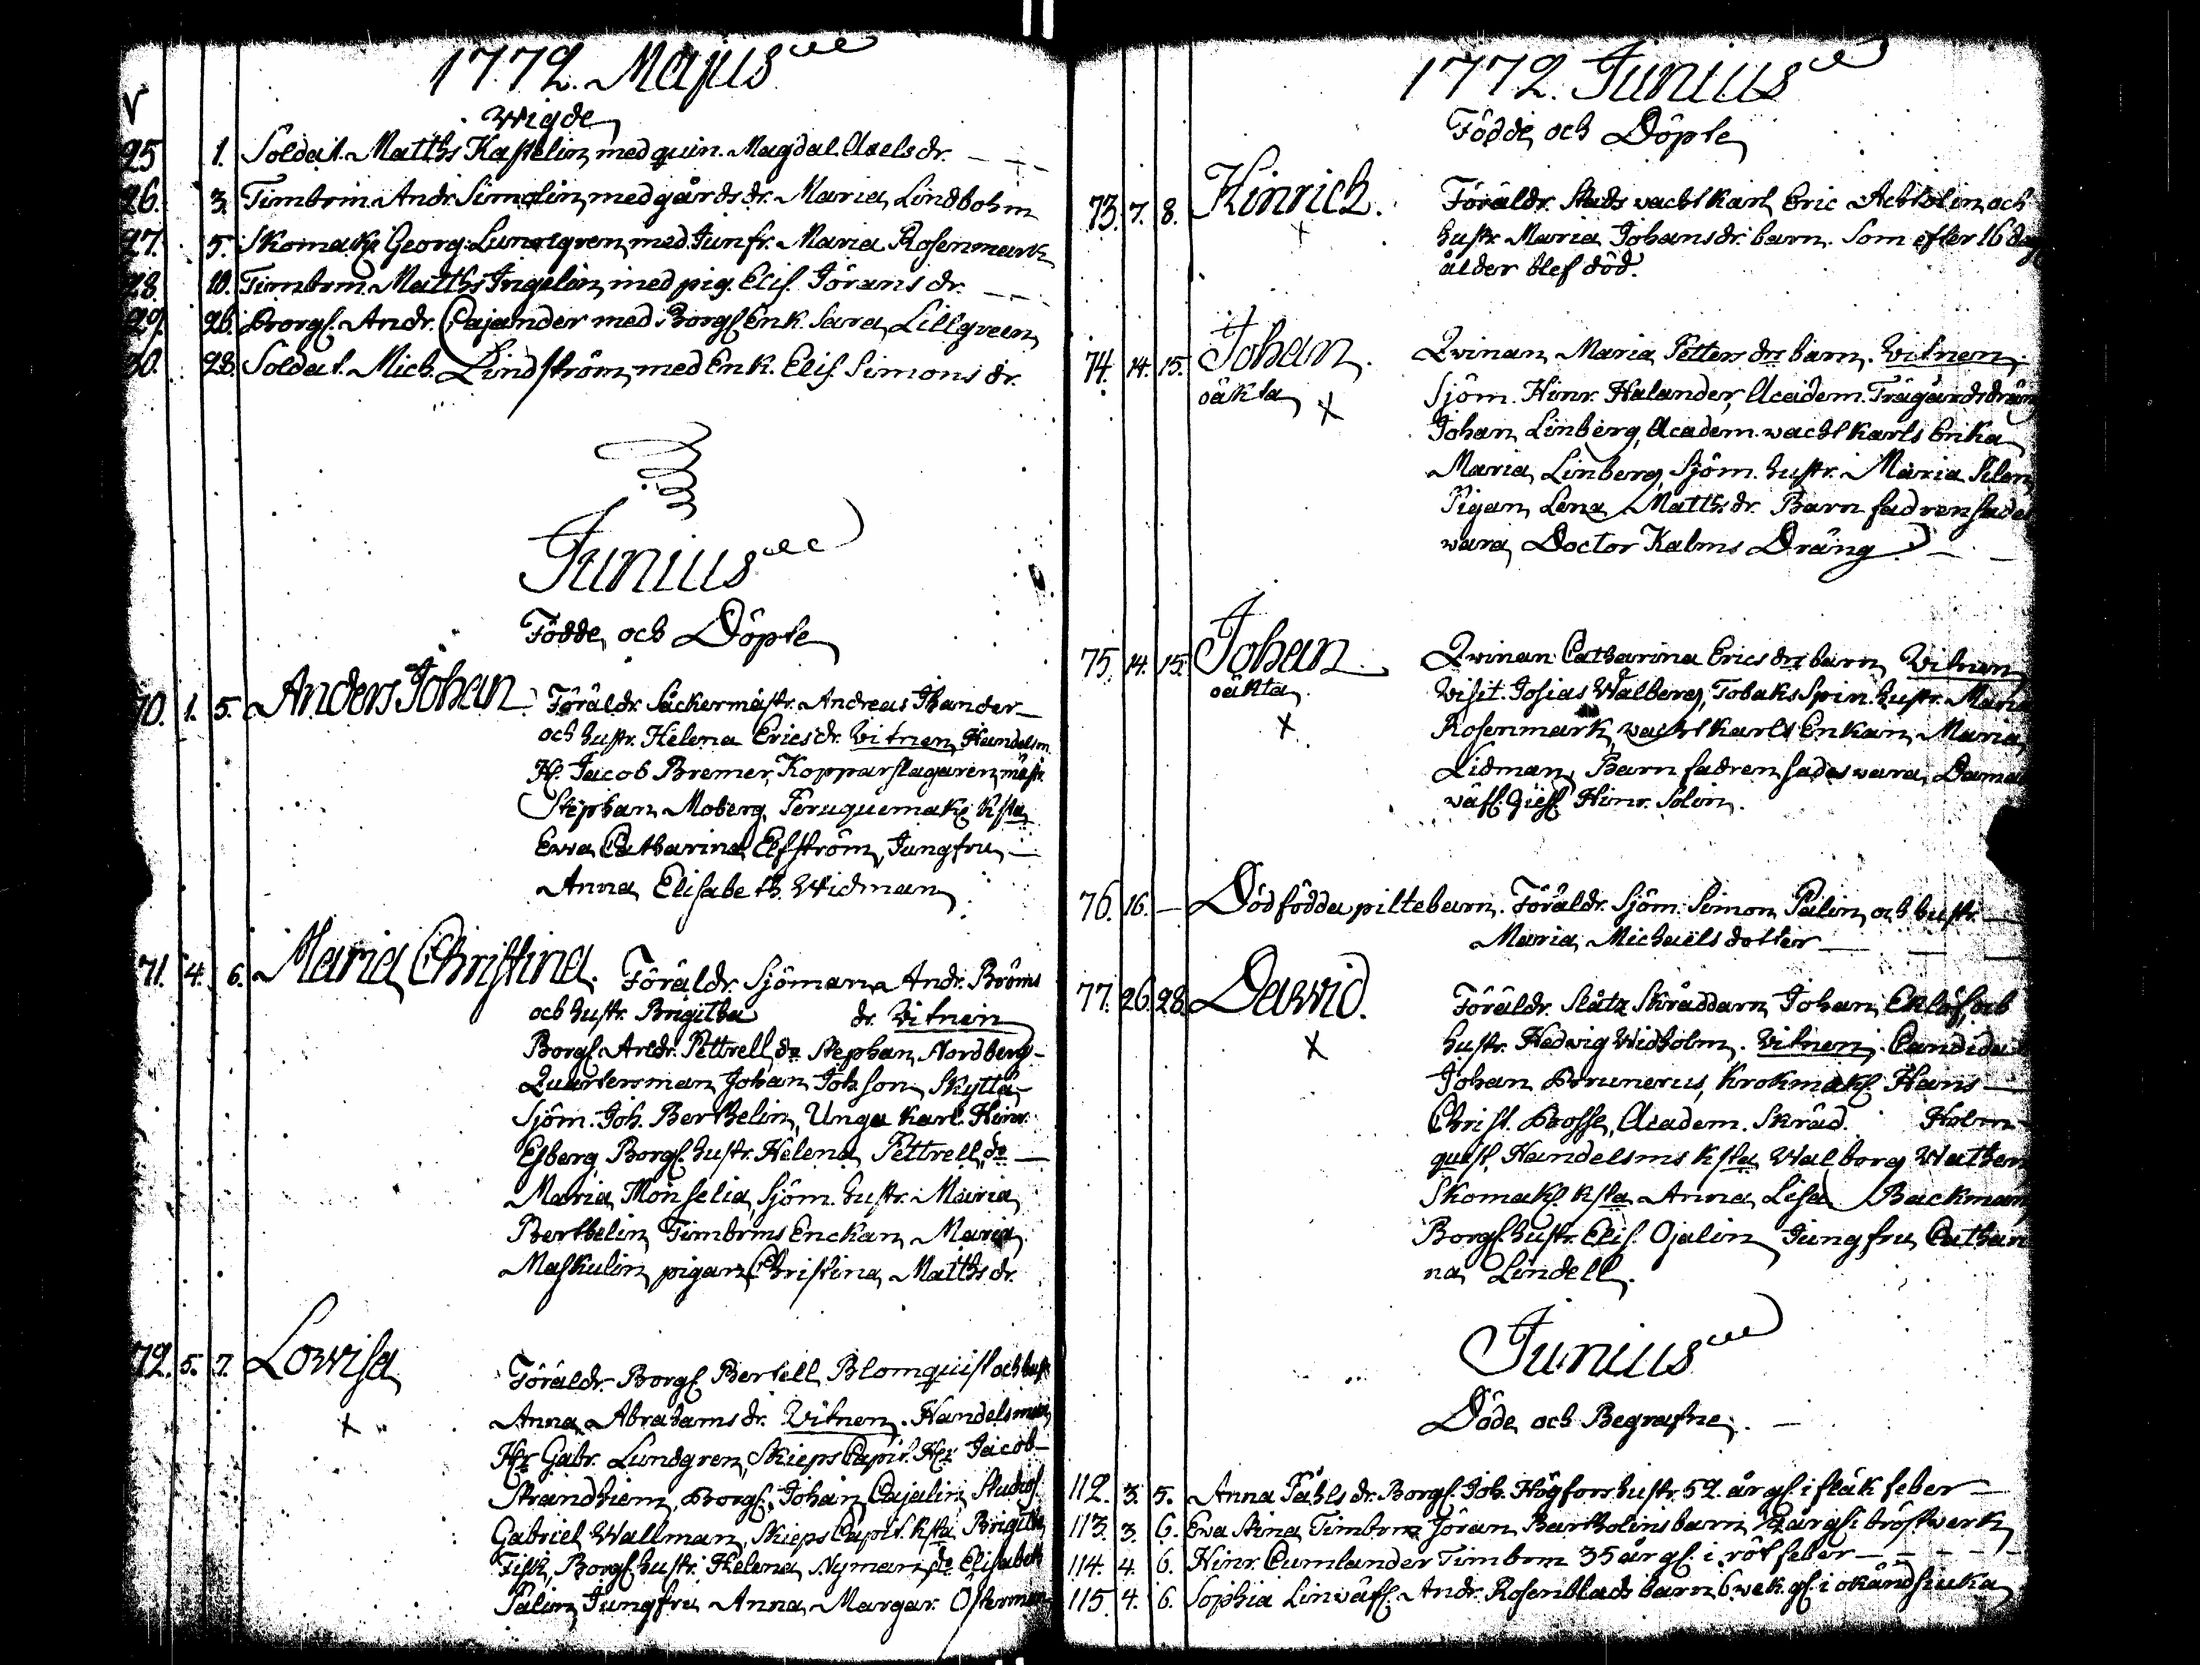 1772. Majus
Wigde
25 1. Soldat. Matths Kastelin, med quin. Magdal. Axels dr.
26. 3. Timbrm. Andr. Simolin, med gårds dr. Maria Lindbohm
27. 5. Skomak. Georg. Lundgren, med Junfr. Maria Rosenmark
28. 10. Timbrm. Matths Ingelin, med pig. Elis. Jörans dr.
29. 26. Borgs. Andr. Cajander med Borgs Enk. Sara Lillgreen
30. 28. Soldat. Mich. Lindström, med Enk. Elis. Simons dr.
Junius
Födde och Döpte
70. 1. 5. Anders Johan. Föräldr. Såckermästr. Andreas Thander
och hustr. Helena Erics dr. Vitnen, Handelsm.
Hr. Jacob Bremer, Kopparslagaren, mäst.
Stephan Moberg, Peruquemak. Ksta
Ewa Catharina Elfström, Jungfru
Anna Elisabeth Widman
71. 4. 6. Maria Christina. Föräldr. Sjöman Andr. Bröms
och hustr. Brigitha dr. Vitnen
Borgs. Andr. Pettrell, do Stephan Nordberg
Quartersman Johan Johson Skyttä
Sjöm. Joh. Berthelin, Unga Karl. Hinr.
Esberg, Borgs. hustr. Helena Pettrell, do
Maria Mönselia, Sjöm. hustr. Maria
Berthelin, Timbrms Enckan, Maria
Maskulin, pigan Christina Matths dr.
72. 5. 7. Lowisa Föräldr. Borgs Bertell Blomquist och hust
Anna Abrahams dr. Vitnen. Handelsman
Hr Gabr. Lundgren, Skieps Capit. Hr Jacob
Strandhiem, Borgs. Johan Cajalin, Studios.
Gabriel Wallman, Skieps Capit. Ksta Brigitha
Fisk, Borgs hustr. Helena Nyman, do Elisabeth
Palin, Jungfru Anna Margar. Österman
1772. Junius
Födde och Döpte
73. 7. 8. Hinrich. Föräldr. Stads vachtkarl Eric Achtolin, och
hustr. Maria Johans dr. barn. Som efter 16 dag
ålder blef död.
74. 14. 15. Johan. Qvinan, Maria Petters dr barn. Vitnen,
oäkta Sjöm. Hinr. Halander, Academ. Trägårdsdräng
Johan Linberg, Academ. wacht Karls Enka
Maria Linberg, Sjöm. hustr. Maria Silen
Pigan Lena Matths dr. Barn fadren sades
wara Doctor Kalms Dräng
75. 14. 15. Johan. Qvinan Catharina Erics dr barn, Vitnen
oäkta. Visit. Josias Walberg, Tobaks Spin. hustr. Maria
Rosenmark, wacht Karls Enkan Maria
Lidman, Barn fadren sades wara, Dama
väfs. Giesl. Hinr. Solin.
76. 16. — Dödfödda piltebarn. Föräldr. Sjöm. Simon Palin, och hustr.
Maria Michaëls dotter
77. 26. 28. Dawid. Föräldr. Slåtz Skräddarn Johan Eklöf, och
hustr. Hedvig Widholm. Vitnen. Candidat
Johan Brunerus, Krokmaks Hans
Christ. Bosse, Academ. Skräd. Holm
quist, Handelsms Ksta Walborg Wathen
Skomaks. Ksta Anna Lisa Backman
Borgs. hustr. Elis. Ojalin, Jungfru Cathari
na Lindell.
Junius
Döde och Begrafne.
112. 3. 5. Anna Påhls dr. Borgs. Joh. Högfors hustr. 52. år gl. i fläk feber
113. 3. 6. Ewa Stina Timbrm Jöran Bartholins barn år gl. i bröstwerk
114. 4. 6. Hinr. Cumlander Timbrm 35 år gl. i röt feber
115. 4. 6. Sophia Linväfs. Andr. Rosenblads barn 6 wek. gl. i okänd siuka